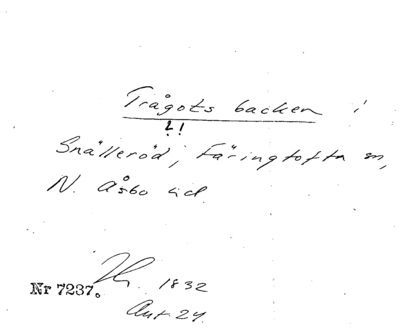 Trågots backen i
!!
Snälleröd, Färingtofta sn,
N. Åsbo hd.
1832
Nr 7237.
Ant 24.